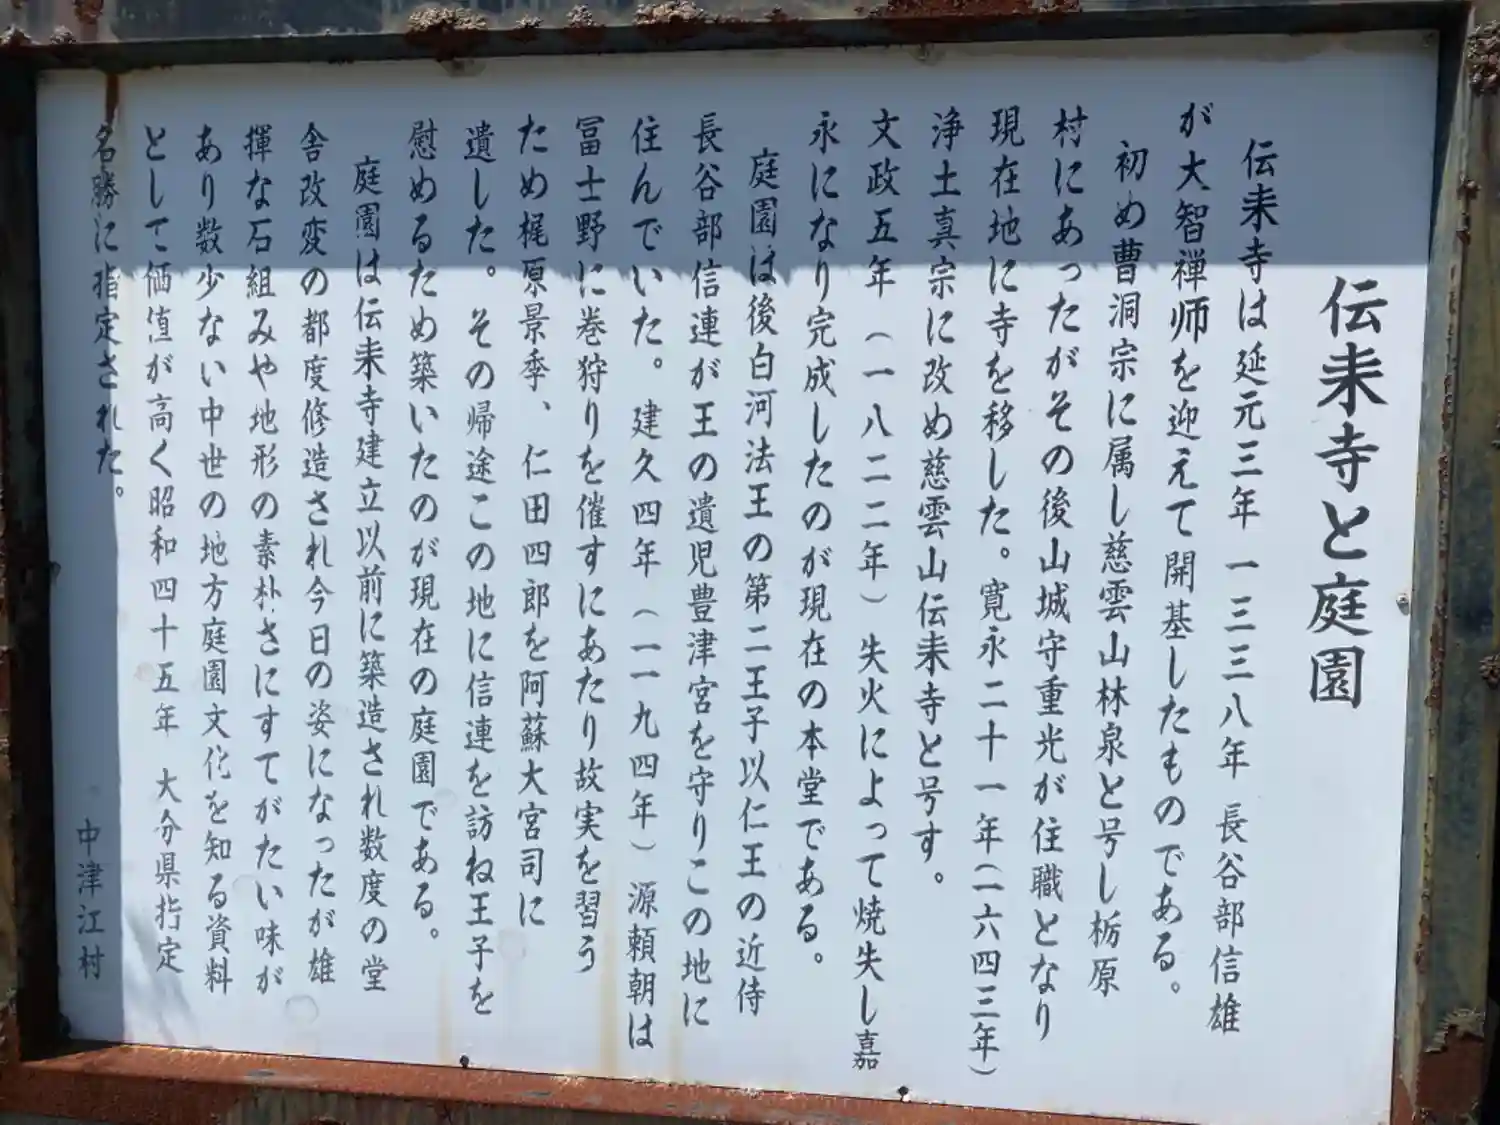 伝来寺と庭園
伝来寺は延元三年 一三三八年 長谷部信雄
が大智禅师を迎えて開基したものである。
初め曹洞宗に属し慈雲山林泉と号し栃原
村にあったがその後山城守重光が住職となり
現在地に寺を移した。寛永二十一年(一六四三年)
浄土真宗に改め慈雲山伝来寺と号す。
文政五年(一八二二年)失火によって焼失し嘉
永になり完成したのが現在の本堂である。
庭園は後白河法王の第二王子以仁王の近侍
長谷部信連が王の遺児豊津宮を守りこの地に
住んでいた。建久四年(一一九四年)源頼朝は
冨士野に巻狩りを催すにあたり故実を習う
ため梶原景季、仁田四郎を阿蘇大宮司に
遺した。その帰途この地に信連を訪ね王子を
慰めるため築いたのが現在の庭園である。
庭園は伝来寺建立以前に築造され数度の堂
舎改変の都度修造され今日の姿になったが雄
揮な石組みや地形の素朴さにすてがたい味が
あり数少ない中世の地方庭園文化を知る資料
として価値が高く昭和四十五年 大分県指定
名勝に指定された。
中津江村